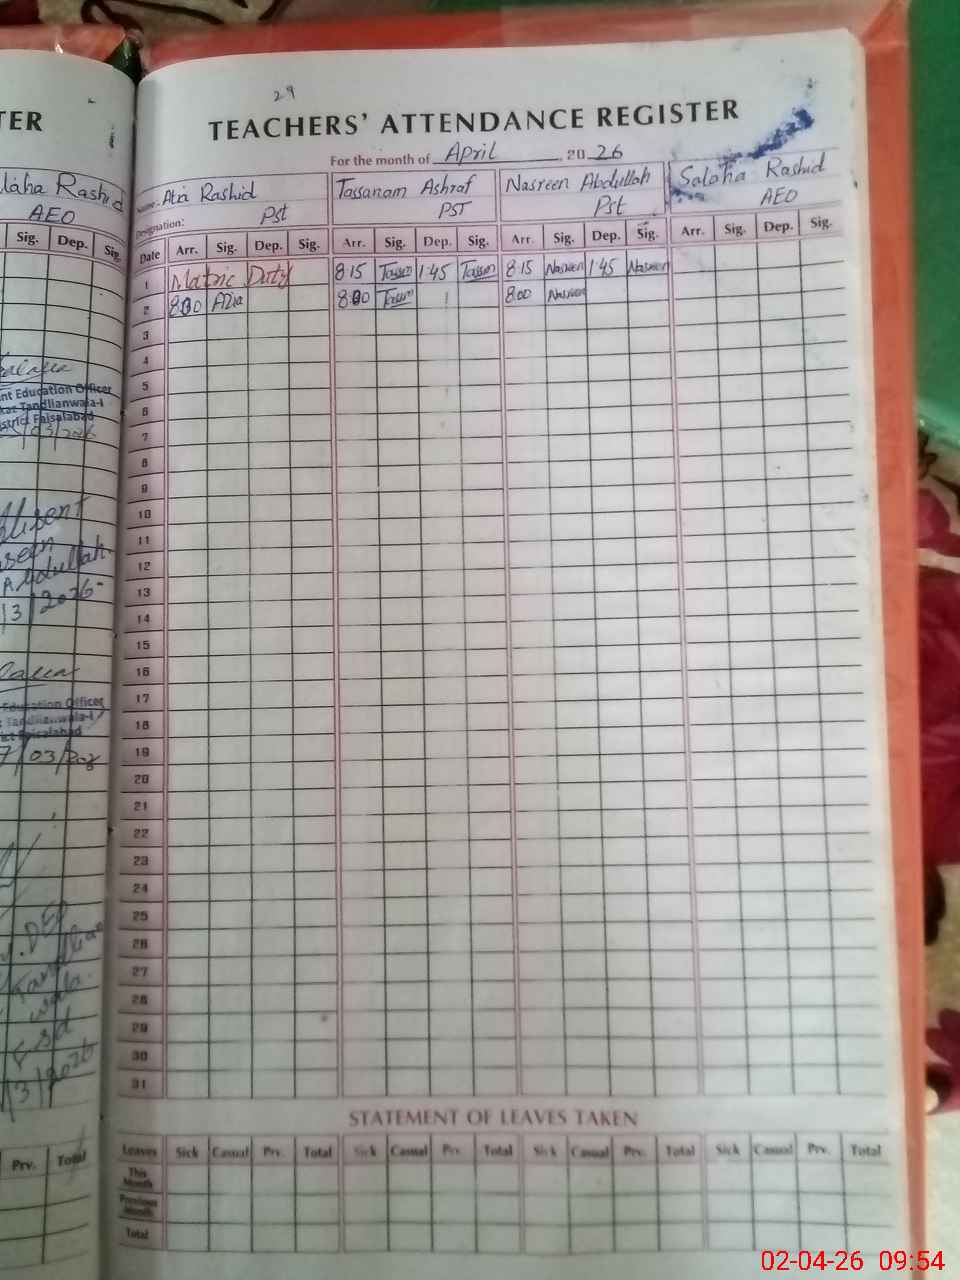 TER
29
TEACHERS' ATTENDANCE REGISTER
For the month of April, 2026
Name:- Atia Rashid Tassanam Ashraf Nasreen Abdullah Salaha Rashid
Designation: Pst PST Pst AEO
laha Rashid
AEO
Sig. Dep. Sig.
Date Arr. Sig. Dep. Sig. Arr. Sig. Dep. Sig. Arr. Sig. Dep. Sig. Arr. Sig. Dep. Sig.
1 Matric Duty 8:15 Tassm 1:45 Tassm 8:15 Nasreen 1:45 Nasreen
2 8:00 Atia 8:00 Tassm 8:00 Nasreen
3
4
5
6
7
8
9
10
11
12
13
14
15
16
17
18
19
20
21
22
23
24
25
26
27
28
29
30
31
nt Education Officer
kaz Tandlianwala-I
strict Faisalabad
Abdullah
3/2026
Education Officer
Tandlianwala-I
ict Faisalabad
STATEMENT OF LEAVES TAKEN
Leaves Sick Casual Prv. Total Sick Casual Prv. Total Sick Casual Prv. Total Sick Casual Prv. Total
This Month
Previous Month
Total
Prv. Total
02-04-26 09:54